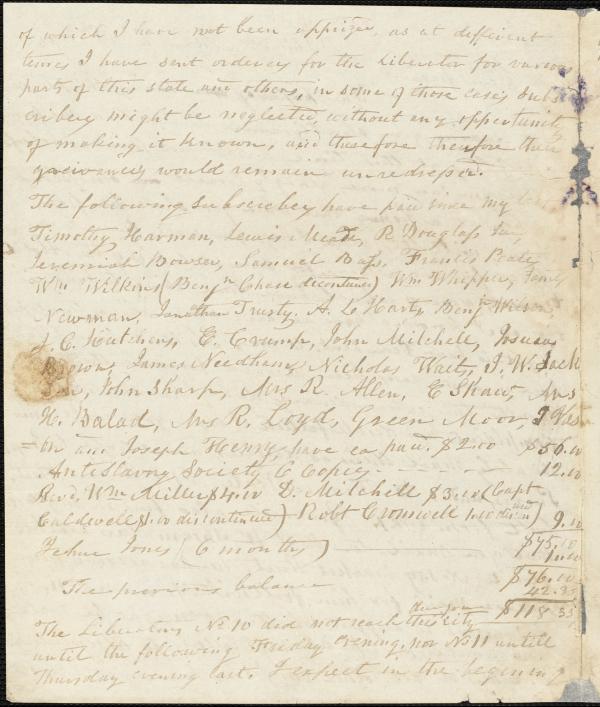 of which I have not been apprized, as at different
times I have sent orders for the Liberator for various
parts of this state and others, in some of those cases subs
cribers might be neglected, without any opportunity
of making it known, and therefore therefore their
greivances would remain unredressed.
The following subscribers have paid since my last
Timothy Harman, Lewis Meads, R Douglass Jun,
Jeremiah Bowser, Samuel Bass, Francis
Wm Wilkins (Benjn Chase discontinued) Wm Whipper, James
Newman, Jonathan Trusty. A. L Harty, Benj Wilson,
J. C. Hutchens, E. Crump, John Mitchell, Josuau
Brown, James Needham, Nicholas Waity, J. W. Jack
son, John Sharp, Mrs R. Allen, E Shaw, Mrs
H. Balad, Mrs R. Loyd, Green Moor, J Vas
=on and Joseph Henry have ea paid. $2.00 $56.00
Anti Slavery Society 6 Copies - - - - 12.00
Revd. Wm Miller $4.00 D. Mitchill $3.00 (Capt
Caldwell $1.00 discontinued) Robt Cromwell 1.00 9.00
$75.00
Jones (6 months) 1.00
$76.00
The previous balance 42.35
due you $118.35
The Liberators No 10 did not reach this city
untill the following Friday evening, nor No 11 untill
Thursday evening last. I expect in the beginning